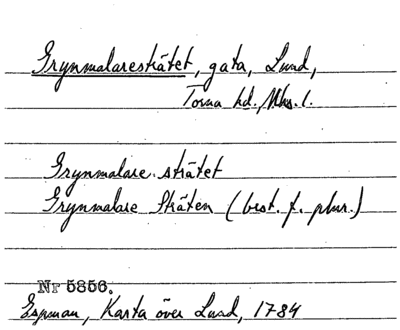 Grynmalaresträtet, gata, Lund,
Torna hd., Mhs. l.
Grynmalare strätet
Grynmalare Sträten (best. f. plur.)
Nr 5856.
Espman, Karta över Lund, 1784